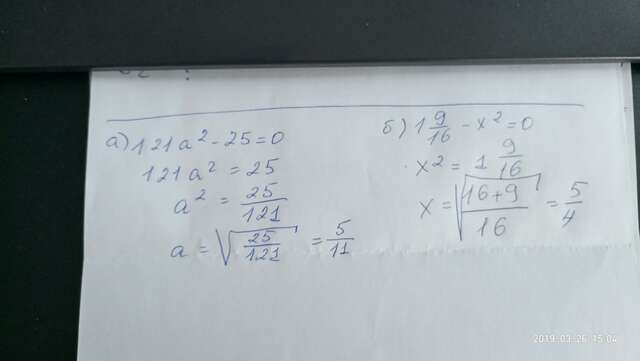 а) 121a² - 25 = 0
121a² = 25
a² = 25/121
a = √(25/121) = 5/11
б) 1 9/16 - x² = 0
x² = 1 9/16
x = √((16+9)/16) = 5/4
2019.03.26 15:04